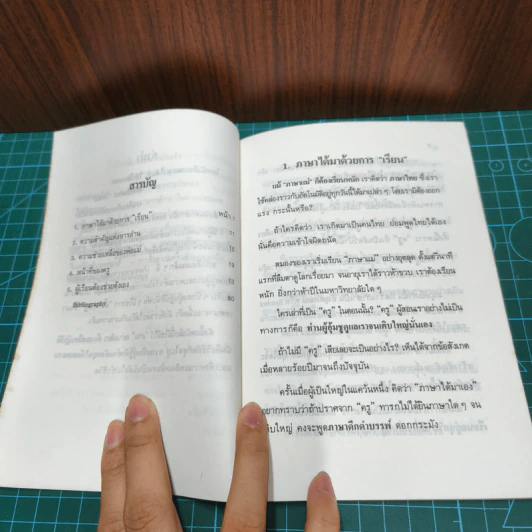 สารบัญ
หน้า
1. ภาษาได้มาด้วยการ "เรียน"
2. ความสำคัญแห่งการอ่าน 11
3. ความช่วยเหลือของพ่อแม่
4. หน้าที่ของครู
5. ผู้เรียนต้องช่วยตัวเอง
Bibliography 80
1. ภาษาได้มาด้วยการ "เรียน"
แม้ "ภาษาแม่" ก็ต้องเรียนหนัก เราคิดว่า ภาษาไทย ซึ่งเรา
ใช้คล่องราวกับอัตโนมัติอยู่ทุกวันนี้ได้มาเปล่า ๆ โดยเรามิต้องออก
แรง กระนั้นหรือ?
ถ้าใครคิดว่า เราเกิดมาเป็นคนไทย ย่อมพูดไทยได้เอง
นั่นคือความเข้าใจผิดถนัด
สมองของเราเริ่มเรียน "ภาษาแม่" อย่างอุตลุด ตั้งแต่วินาที
แรกที่ลืมตาดูโลกเรื่อยมา จนอายุเราได้ราวห้าขวบ เราต้องเรียน
หนัก ยิ่งกว่าห้าปีในมหาวิทยาลัยใด ๆ
ใครเล่าที่เป็น "ครู" ในตอนนั้น? "ครู" ผู้สอนเราอย่างไม่เป็น
ทางการก็คือ ท่านผู้อุ้มชูดูแลเราจนเติบใหญ่นั่นเอง
ถ้าไม่มี "ครู" เสียเลยจะเป็นอย่างไร? เห็นได้จากข้อสังเกต
เมื่อหลายร้อยปีมาจนถึงปัจจุบัน
ครั้นเมื่อผู้เป็นใหญ่ในแคว้นหนึ่ง คิดว่า "ภาษาได้มาเอง"
อยากทราบว่าถ้าปราศจาก "ครู" ทารกไม่ได้ยินภาษาใด ๆ จน
เติบใหญ่ คงจะพูดภาษาดึกดำบรรพ์ ดอกกระมัง